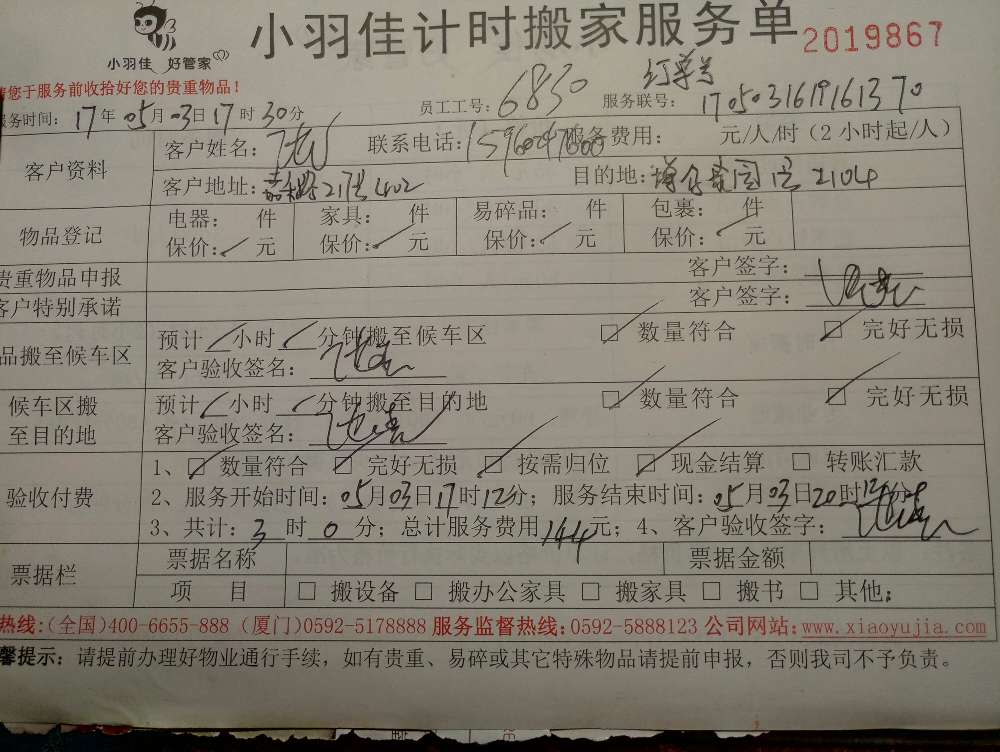 小羽佳 好管家
小羽佳计时搬家服务单 2019867
请您于服务前收拾好您的贵重物品！
服务时间：17年05月03日17时30分 员工工号：6830 服务联号： 订单号 1705031619161370
客户资料 客户姓名： 联系电话： 服务费用： 元/人/时（2小时起/人）
客户地址： 217号402 目的地： 2104
物品登记 电器： 件 家具： 件 易碎品： 件 包裹： 件
保价：／元 保价：／元 保价：／元 保价：／元
贵重物品申报 客户签字：
客户特别承诺 客户签字：
品搬至候车区 预计／小时／分钟搬至候车区 ☑ 数量符合 ☑ 完好无损
客户验收签名：
候车区搬至目的地 预计／小时／分钟搬至目的地 ☑ 数量符合 ☑ 完好无损
客户验收签名：
验收付费 1、☑ 数量符合 ☑ 完好无损 ☑ 按需归位 ☑ 现金结算 □ 转账汇款
2、服务开始时间：05月03日17时12分；服务结束时间：05月03日20时12分
3、共计：3时0分；总计服务费用144元；4、客户验收签字：
票据栏 票据名称 票据金额
项 目 □ 搬设备 □ 搬办公家具 □ 搬家具 □ 搬书 □ 其他：
热线:(全国)400-6655-888 (厦门)0592-5178888 服务监督热线:0592-5888123 公司网站:www.xiaoyujia.com
馨提示：请提前办理好物业通行手续，如有贵重、易碎或其它特殊物品请提前申报，否则我司不予负责。